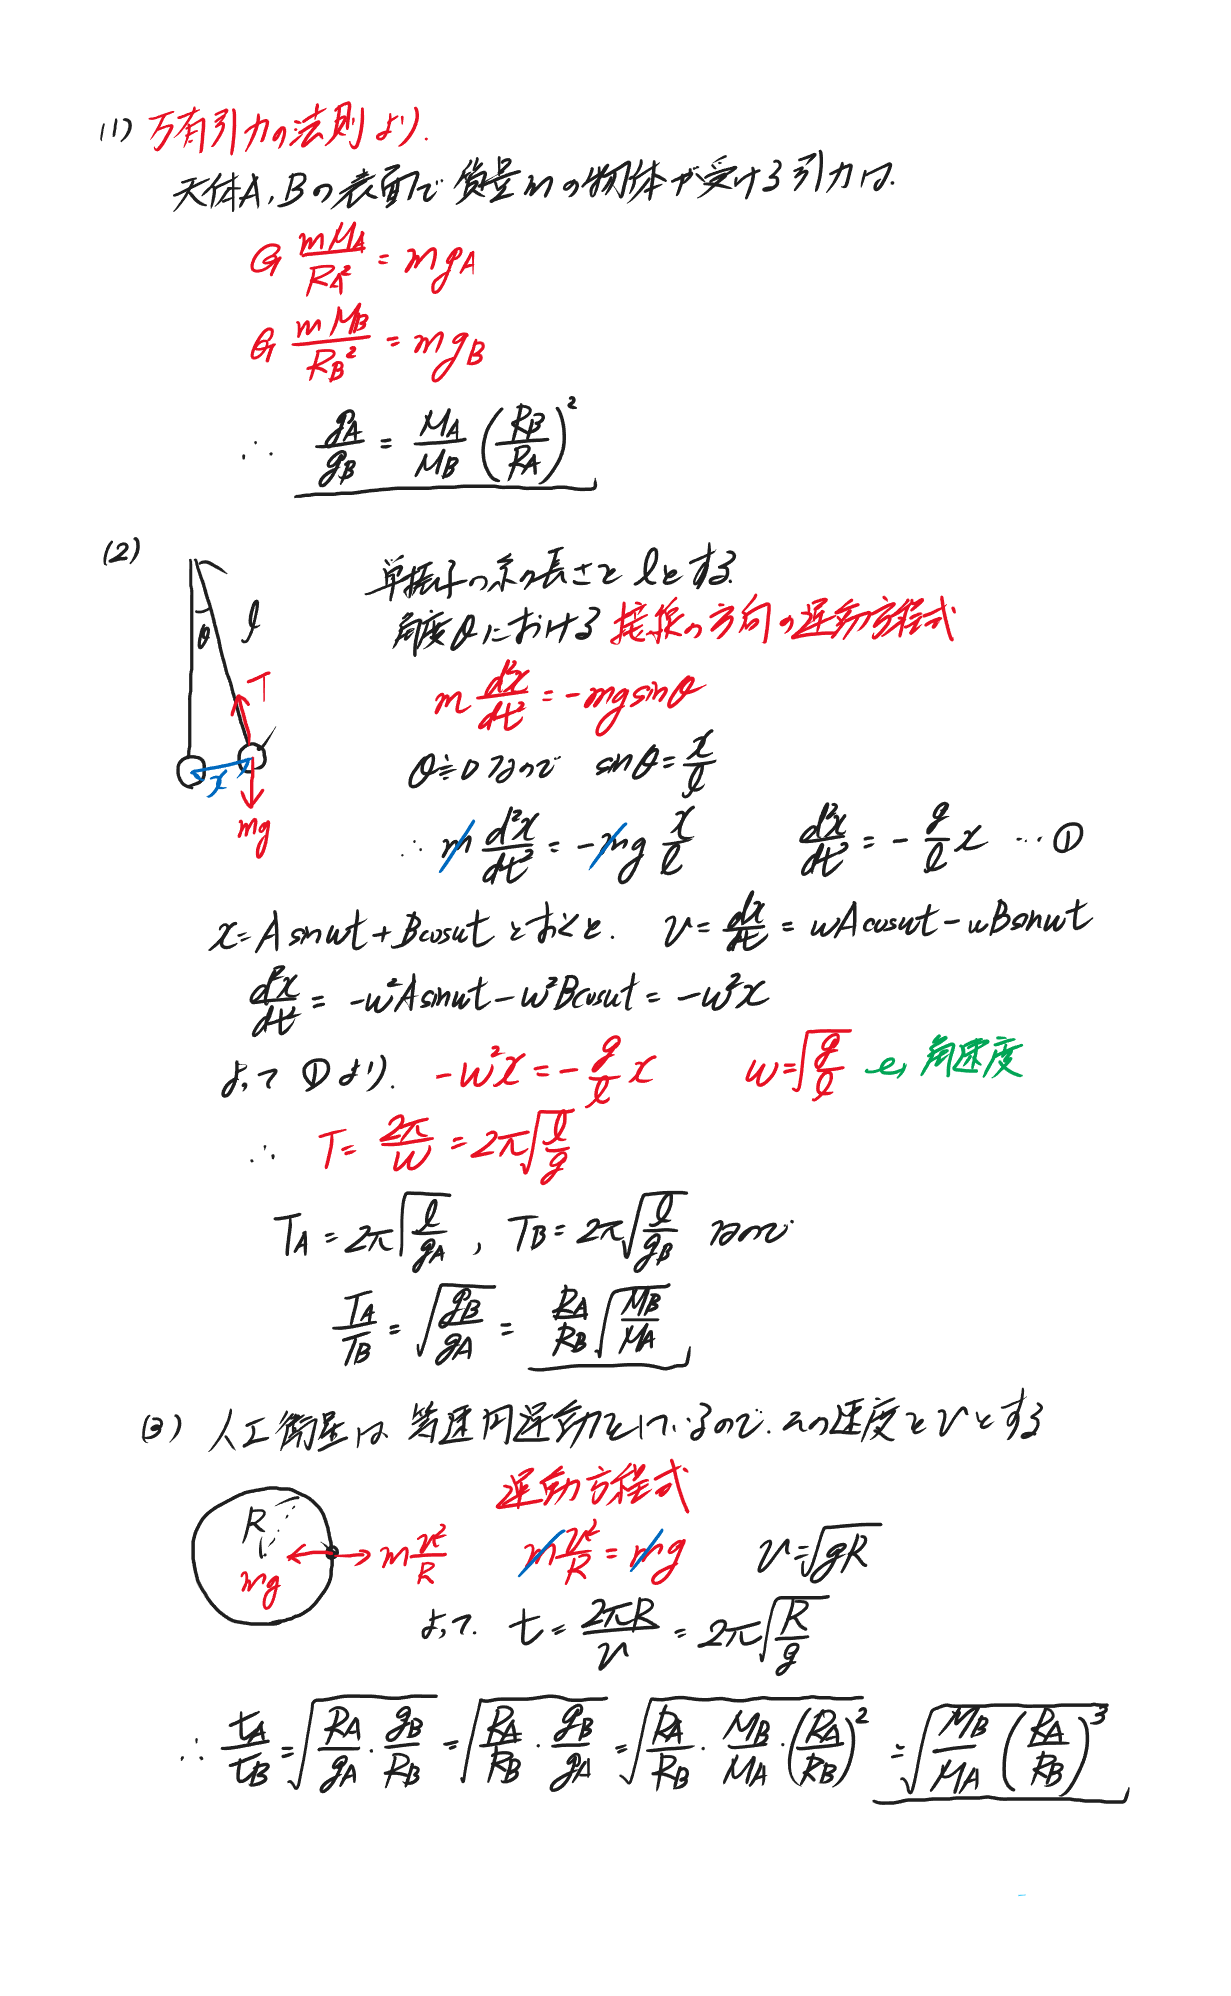 (1) 万有引力の法則より.
天体A,Bの表面で質量mの物体が受ける引力は.
G mM_A/R_A² = mg_A
G mM_B/R_B² = mg_B
∴ g_A/g_B = M_A/M_B (R_B/R_A)²
(2)
単振子の糸の長さを lとする.
角度θにおける接線の方向の運動方程式
θ l T x mg
m d²x/dt² = -mg sinθ
θ≒0なので sinθ = x/l
∴ m d²x/dt² = -mg x/l d²x/dt² = - g/l x …①
x = A sinωt + B cosωt とおくと. v = dx/dt = ωA cosωt - ωB sinωt
d²x/dt² = -ω²A sinωt - ω²B cosωt = -ω²x
よって ①より. -ω²x = - g/l x ω = √(g/l) 角速度
∴ T = 2π/ω = 2π√(l/g)
T_A = 2π√(l/g_A) , T_B = 2π√(l/g_B) なので
T_A/T_B = √(g_B/g_A) = R_A/R_B √(M_B/M_A)
(3) 人工衛星は等速円運動をしているので.その速度をvとする
運動方程式
R mg m v²/R
m v²/R = mg v = √(gR)
よって. t = 2πR/v = 2π√(R/g)
∴ t_A/t_B = √(R_A/g_A · g_B/R_B) = √(R_A/R_B · g_B/g_A) = √(R_A/R_B · M_B/M_A · (R_A/R_B)²) = √(M_B/M_A (R_A/R_B)³)